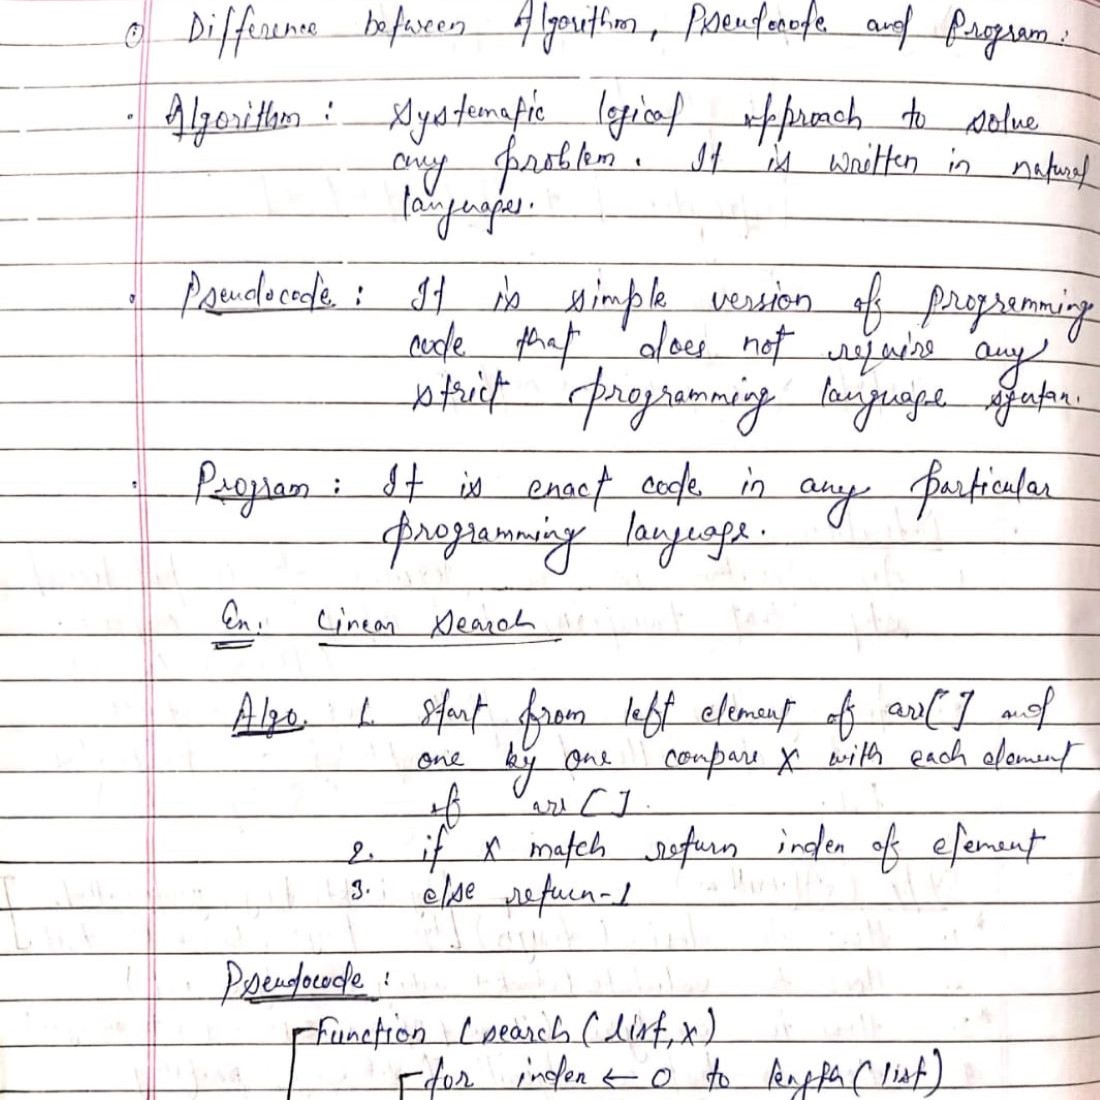 ① Difference between Algorithm, Pseudocode and Program:
• Algorithm : Systematic logical approach to solve
any problem. It is written in natural
languages.
• Pseudocode : It is simple version of programming
code that does not require any
strict programming language syntax.
• Program : It is exact code in any particular
programming language.
Ex. Linear Search
Algo. 1. Start from left element of arr[ ] and
one by one compare x with each element
of arr [ ].
2. if x match return index of element
3. else return -1
Pseudocode :
Function lsearch (list, x)
for index ← 0 to length (list)